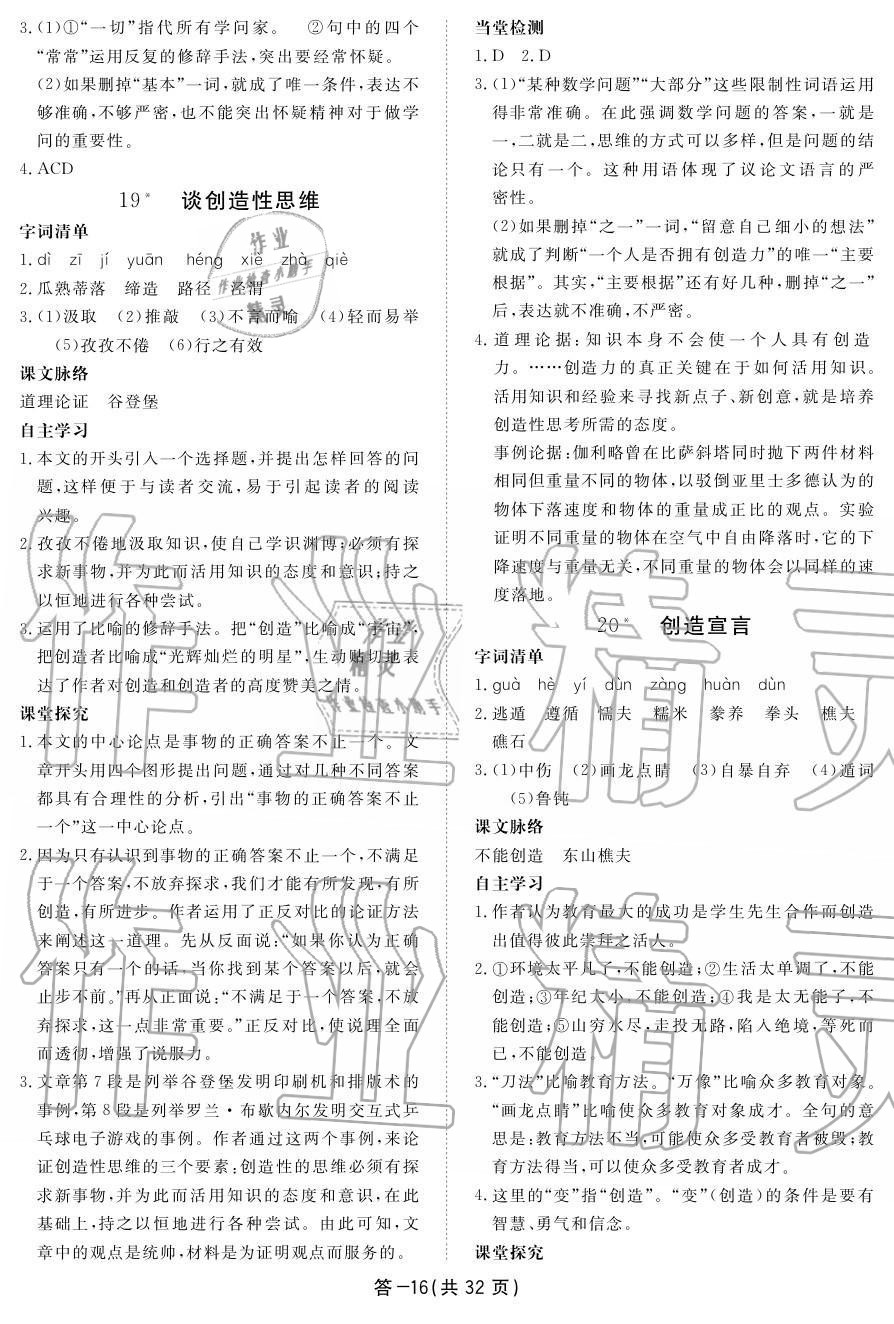 3.(1)①“一切”指代所有学问家。 ②句中的四个
“常常”运用反复的修辞手法,突出要经常怀疑。
(2)如果删掉“基本”一词,就成了唯一条件,表达不
够准确,不够严密,也不能突出怀疑精神对于做学
问的重要性。
4.ACD
19* 谈创造性思维
字词清单
1.dì zī jí yuān héng xiě zhà qiè
2.瓜熟蒂落 缔造 路径 泾渭
3.(1)汲取 (2)推敲 (3)不言而喻 (4)轻而易举
(5)孜孜不倦 (6)行之有效
课文脉络
道理论证 谷登堡
自主学习
1.本文的开头引入一个选择题,并提出怎样回答的问
题,这样便于与读者交流,易于引起读者的阅读
兴趣。
2.孜孜不倦地汲取知识,使自己学识渊博;必须有探
求新事物,并为此而活用知识的态度和意识;持之
以恒地进行各种尝试。
3.运用了比喻的修辞手法。把“创造”比喻成“宇宙”,
把创造者比喻成“光辉灿烂的明星”,生动贴切地表
达了作者对创造和创造者的高度赞美之情。
课堂探究
1.本文的中心论点是事物的正确答案不止一个。文
章开头用四个图形提出问题,通过对几种不同答案
都具有合理性的分析,引出“事物的正确答案不止
一个”这一中心论点。
2.因为只有认识到事物的正确答案不止一个,不满足
于一个答案,不放弃探求,我们才能有所发现,有所
创造,有所进步。作者运用了正反对比的论证方法
来阐述这一道理。先从反面说:“如果你认为正确
答案只有一个的话,当你找到某个答案以后,就会
止步不前。”再从正面说:“不满足于一个答案,不放
弃探求,这一点非常重要。”正反对比,使说理全面
而透彻,增强了说服力。
3.文章第7段是列举谷登堡发明印刷机和排版术的
事例,第8段是列举罗兰·布歇内尔发明交互式乒
乓球电子游戏的事例。作者通过这两个事例,来论
证创造性思维的三个要素:创造性的思维必须有探
求新事物,并为此而活用知识的态度和意识,在此
基础上,持之以恒地进行各种尝试。由此可知,文
章中的观点是统帅,材料是为证明观点而服务的。
当堂检测
1.D 2.D
3.(1)“某种数学问题”“大部分”这些限制性词语运用
得非常准确。在此强调数学问题的答案,一就是
一,二就是二,思维的方式可以多样,但是问题的结
论只有一个。这种用语体现了议论文语言的严
密性。
(2)如果删掉“之一”一词,“留意自己细小的想法”
就成了判断“一个人是否拥有创造力”的唯一“主要
根据”。其实,“主要根据”还有好几种,删掉“之一”
后,表达就不准确,不严密。
4.道理论据:知识本身不会使一个人具有创造
力。……创造力的真正关键在于如何活用知识。
活用知识和经验来寻找新点子、新创意,就是培养
创造性思考所需的态度。
事例论据:伽利略曾在比萨斜塔同时抛下两件材料
相同但重量不同的物体,以驳倒亚里士多德认为的
物体下落速度和物体的重量成正比的观点。实验
证明不同重量的物体在空气中自由降落时,它的下
降速度与重量无关,不同重量的物体会以同样的速
度落地。
20* 创造宣言
字词清单
1.guà hè yí dùn zàng huàn dùn
2.逃遁 遵循 懦夫 糯米 豢养 拳头 樵夫
礁石
3.(1)中伤 (2)画龙点睛 (3)自暴自弃 (4)遁词
(5)鲁钝
课文脉络
不能创造 东山樵夫
自主学习
1.作者认为教育最大的成功是学生先生合作而创造
出值得彼此崇拜之活人。
2.①环境太平凡了,不能创造;②生活太单调了,不能
创造;③年纪太小,不能创造;④我是太无能了,不
能创造;⑤山穷水尽,走投无路,陷入绝境,等死而
已,不能创造。
3.“刀法”比喻教育方法。“万像”比喻众多教育对象。
“画龙点睛”比喻使众多教育对象成才。全句的意
思是:教育方法不当,可能使众多受教育者被毁;教
育方法得当,可以使众多受教育者成才。
4.这里的“变”指“创造”。“变”(创造)的条件是要有
智慧、勇气和信念。
课堂探究
答-16(共 32 页)
作业精灵
作业精灵